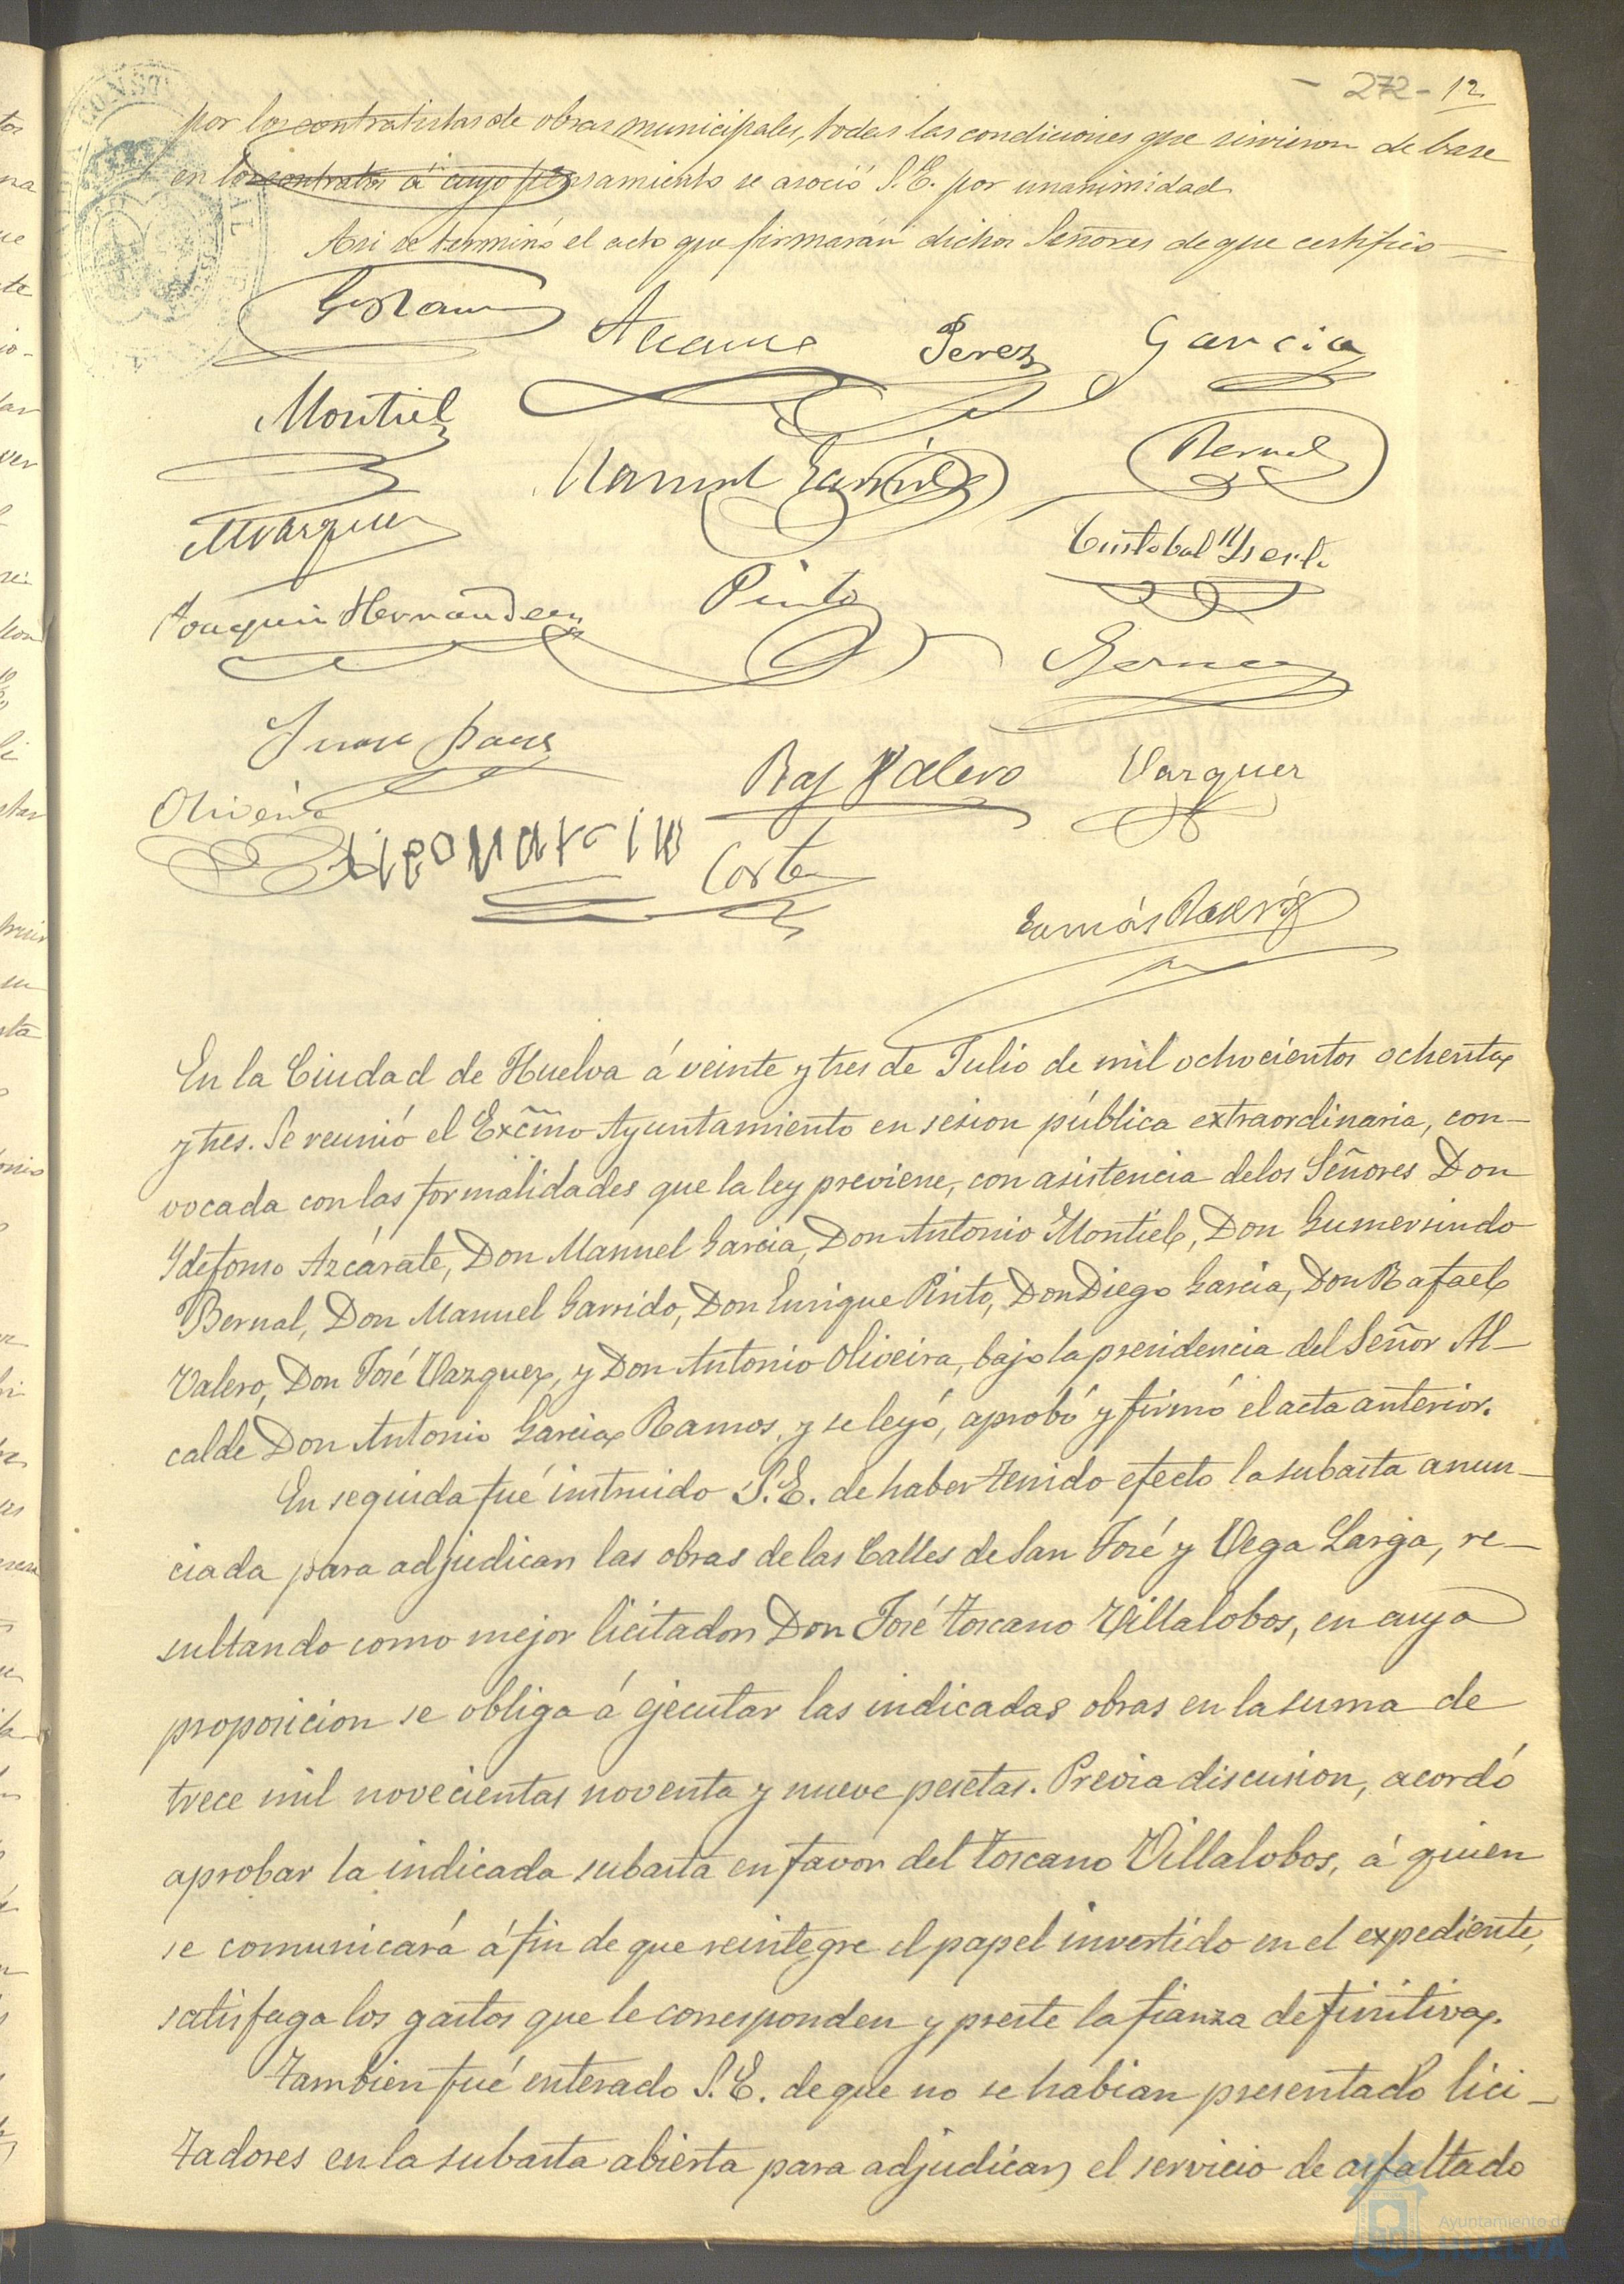 - 272 - 12
por los contratistas de obras municipales, todas las condiciones que sirvieron de base
en los contratos á cuyo pensamiento se asoció S.E. por unanimidad.
Asi se terminó el acto que firmarán dichos Señores de que certifico
Perez Garcia
Montiel
Manuel Garrido Bernal
Marquez
Cristobal
Joaquin Hernandez Pinto
Juan
Raf Valero Vazquez
Oliveira
Diego Garcia
Cortes
Tomás
En la Ciudad de Huelva á veinte y tres de Julio de mil ochocientos ochenta
y tres. Se reunió el Excmo Ayuntamiento en sesion pública extraordinaria, con-
vocada con las formalidades que la ley previene, con asistencia delos Señores Don
Ydefonso Azcárate, Don Manuel Garcia, Don Antonio Montiel, Don Gumersindo
Bernal, Don Manuel Garrido, Don Enrique Pinto, Don Diego Garcia, Don Rafael
Valero, Don José Vazquez, y Don Antonio Oliveira, bajo la presidencia del Señor Al-
calde Don Antonio Garcia Ramos, y se leyó, aprobó y firmó el acta anterior.
En seguida fué instruido S.E. de haber tenido efecto la subasta anun-
ciada para adjudicar las obras de las Calles de San José y Vega Larga, re-
sultando como mejor licitador Don José Toscano Villalobos, en cuya
proposicion se obliga á ejecutar las indicadas obras en la suma de
trece mil novecientas noventa y nueve pesetas. Previa discusion, acordó
aprobar la indicada subasta en favor del Toscano Villalobos, á quien
se comunicará á fin de que reintegre el papel invertido en el expediente,
satisfaga los gastos que le corresponden y preste la fianza definitiva.
Tambien fué enterado S.E. de que no se habian presentado lici-
tadores en la subasta abierta para adjudicar el servicio de asfaltado
Ayuntamiento de
HUELVA